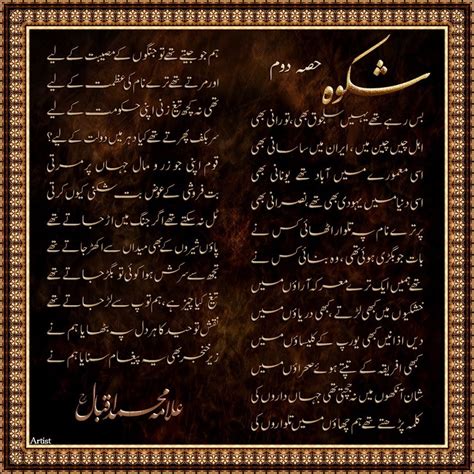 شکوہ
حصہ دوم
بس رہے تھے یہیں سلجوق بھی، تورانی بھی
اہل چیں چین میں، ایران میں ساسانی بھی
اسی معمورے میں آباد تھے یونانی بھی
اسی دنیا میں یہودی بھی تھے، نصرانی بھی
پر ترے نام پہ تلوار اٹھائی کس نے
بات جو بگڑی ہوئی تھی، وہ بنائی کس نے
تھے ہمیں ایک ترے معرکہ آراؤں میں
خشکیوں میں کبھی لڑتے، کبھی دریاؤں میں
دیں اذانیں کبھی یورپ کے کلیساؤں میں
کبھی افریقہ کے تپتے ہوئے صحراؤں میں
شان آنکھوں میں نہ جچتی تھی جہاں داروں کی
کلمہ پڑھتے تھے ہم چھاؤں میں تلواروں کی
ہم جو جیتے تھے تو جنگوں کے مصیبت کے لیے
اور مرتے تھے ترے نام کی عظمت کے لیے
تھی نہ کچھ تیغ زنی اپنی حکومت کے لیے
سربکف پھرتے تھے کیا دہر میں دولت کے لیے؟
قوم اپنی جو زر و مال جہاں پر مرتی
بت فروشی کے عوض بت شکنی کیوں کرتی
ٹل نہ سکتے تھے اگر جنگ میں اڑ جاتے تھے
پاؤں شیروں کے بھی میداں سے اکھڑ جاتے تھے
تجھ سے سرکش ہوا کوئی تو بگڑ جاتے تھے
تیغ کیا چیز ہے، ہم توپ سے لڑ جاتے تھے
نقش توحید کا ہر دل پہ بٹھایا ہم نے
زیر خنجر بھی یہ پیغام سنایا ہم نے
علامہ محمد اقبال
Artist